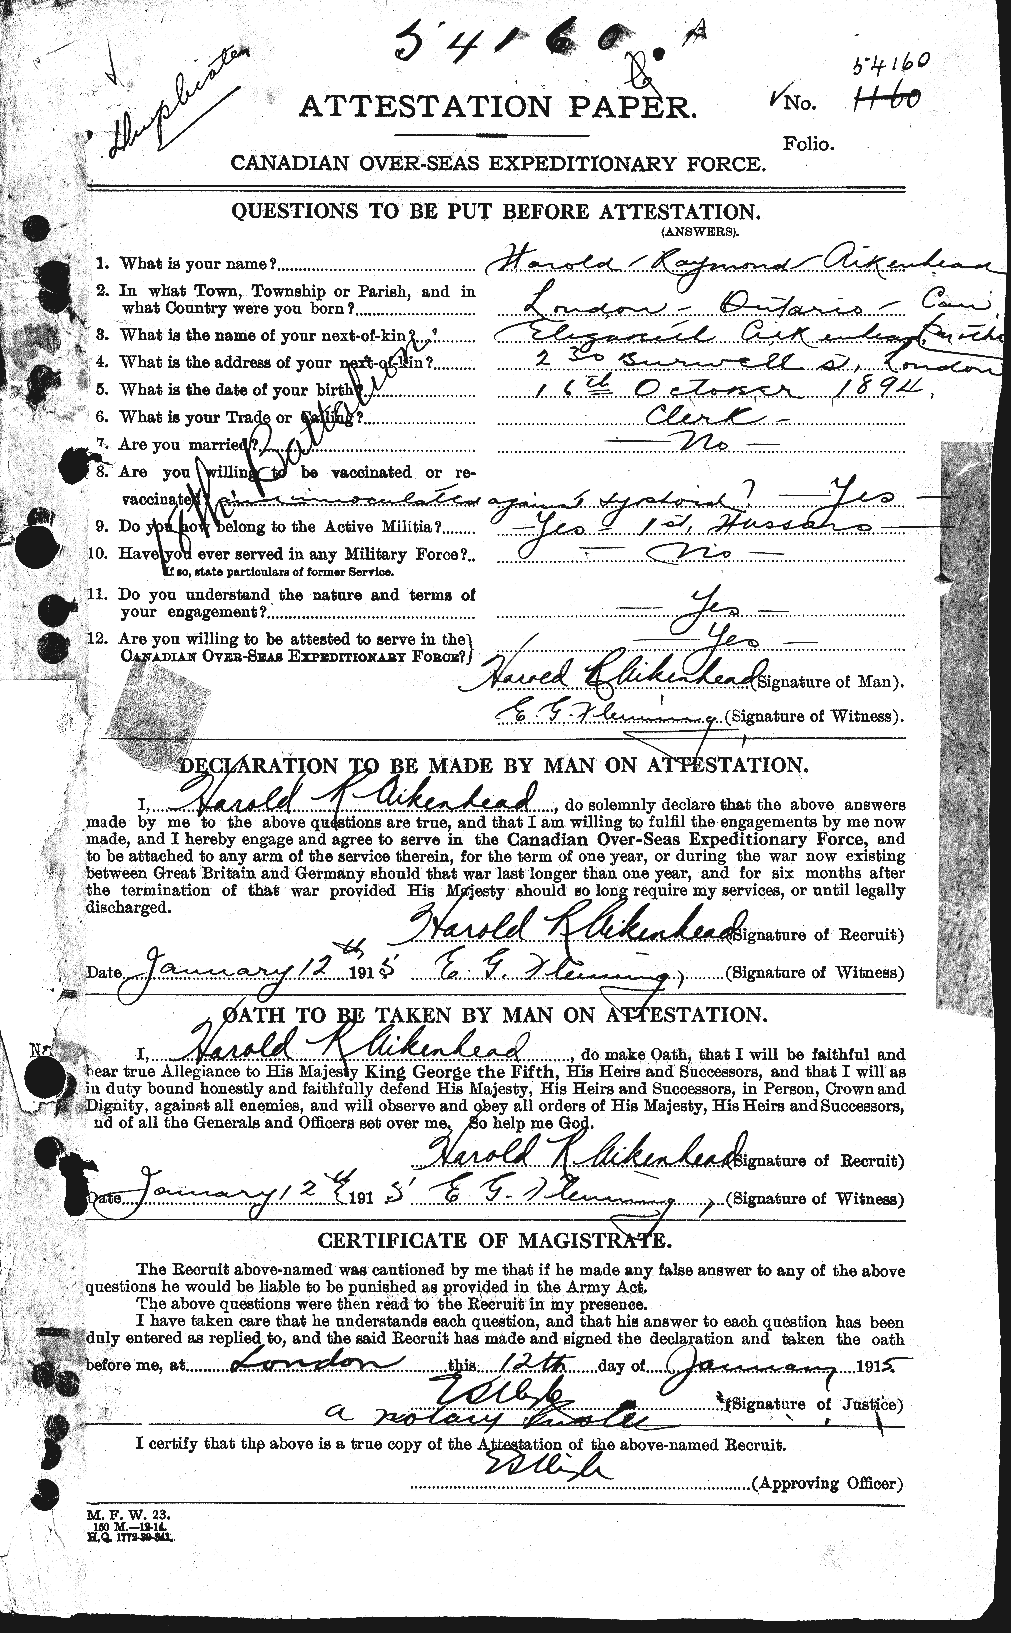 54160 A
Duplicate
54160
ATTESTATION PAPER.
No. 1160
Folio.
CANADIAN OVER-SEAS EXPEDITIONARY FORCE.
QUESTIONS TO BE PUT BEFORE ATTESTATION.
(ANSWERS).
1. What is your name? Harold Raymond Aikenhead
2. In what Town, Township or Parish, and in
what Country were you born? London - Ontario - Can
3. What is the name of your next-of-kin? Elizabeth Aikenhead (mother
4. What is the address of your next-of-kin? 230 Burwell st, London
5. What is the date of your birth? 16th October 1894.
6. What is your Trade or Calling? Clerk -
7. Are you married? - No -
8. Are you willing to be vaccinated or re-
vaccinated? and innoculated against typhoid? - Yes -
9. Do you now belong to the Active Militia? - Yes - 1st, Hussars -
10. Have you ever served in any Military Force? - No -
If so, state particulars of former Service.
11. Do you understand the nature and terms of
your engagement? - Yes -
12. Are you willing to be attested to serve in the
CANADIAN OVER-SEAS EXPEDITIONARY FORCE? - Yes -
18th Battalion
Harold R Aikenhead (Signature of Man).
E. G. Fleming (Signature of Witness).
DECLARATION TO BE MADE BY MAN ON ATTESTATION.
I, Harold R Aikenhead, do solemnly declare that the above answers
made by me to the above questions are true, and that I am willing to fulfil the engagements by me now
made, and I hereby engage and agree to serve in the Canadian Over-Seas Expeditionary Force, and
to be attached to any arm of the service therein, for the term of one year, or during the war now existing
between Great Britain and Germany should that war last longer than one year, and for six months after
the termination of that war provided His Majesty should so long require my services, or until legally
discharged.
Harold R Aikenhead (Signature of Recruit)
Date January 12th 1915 E. G. Fleming, (Signature of Witness)
OATH TO BE TAKEN BY MAN ON ATTESTATION.
I, Harold R Aikenhead, do make Oath, that I will be faithful and
bear true Allegiance to His Majesty King George the Fifth, His Heirs and Successors, and that I will as
in duty bound honestly and faithfully defend His Majesty, His Heirs and Successors, in Person, Crown and
Dignity, against all enemies, and will observe and obey all orders of His Majesty, His Heirs and Successors,
nd of all the Generals and Officers set over me. So help me God.
Harold R Aikenhead (Signature of Recruit)
Date January 12th 1915 E G. Fleming, (Signature of Witness)
CERTIFICATE OF MAGISTRATE.
The Recruit above-named was cautioned by me that if he made any false answer to any of the above
questions he would be liable to be punished as provided in the Army Act.
The above questions were then read to the Recruit in my presence.
I have taken care that he understands each question, and that his answer to each question has been
duly entered as replied to, and the said Recruit has made and signed the declaration and taken the oath
before me, at London this 12th day of January 1915
(Signature of Justice)
a notary Public
I certify that the above is a true copy of the Attestation of the above-named Recruit.
(Approving Officer)
M. F. W. 23.
150 M.—12-14.
H.Q. 1772-39-841.